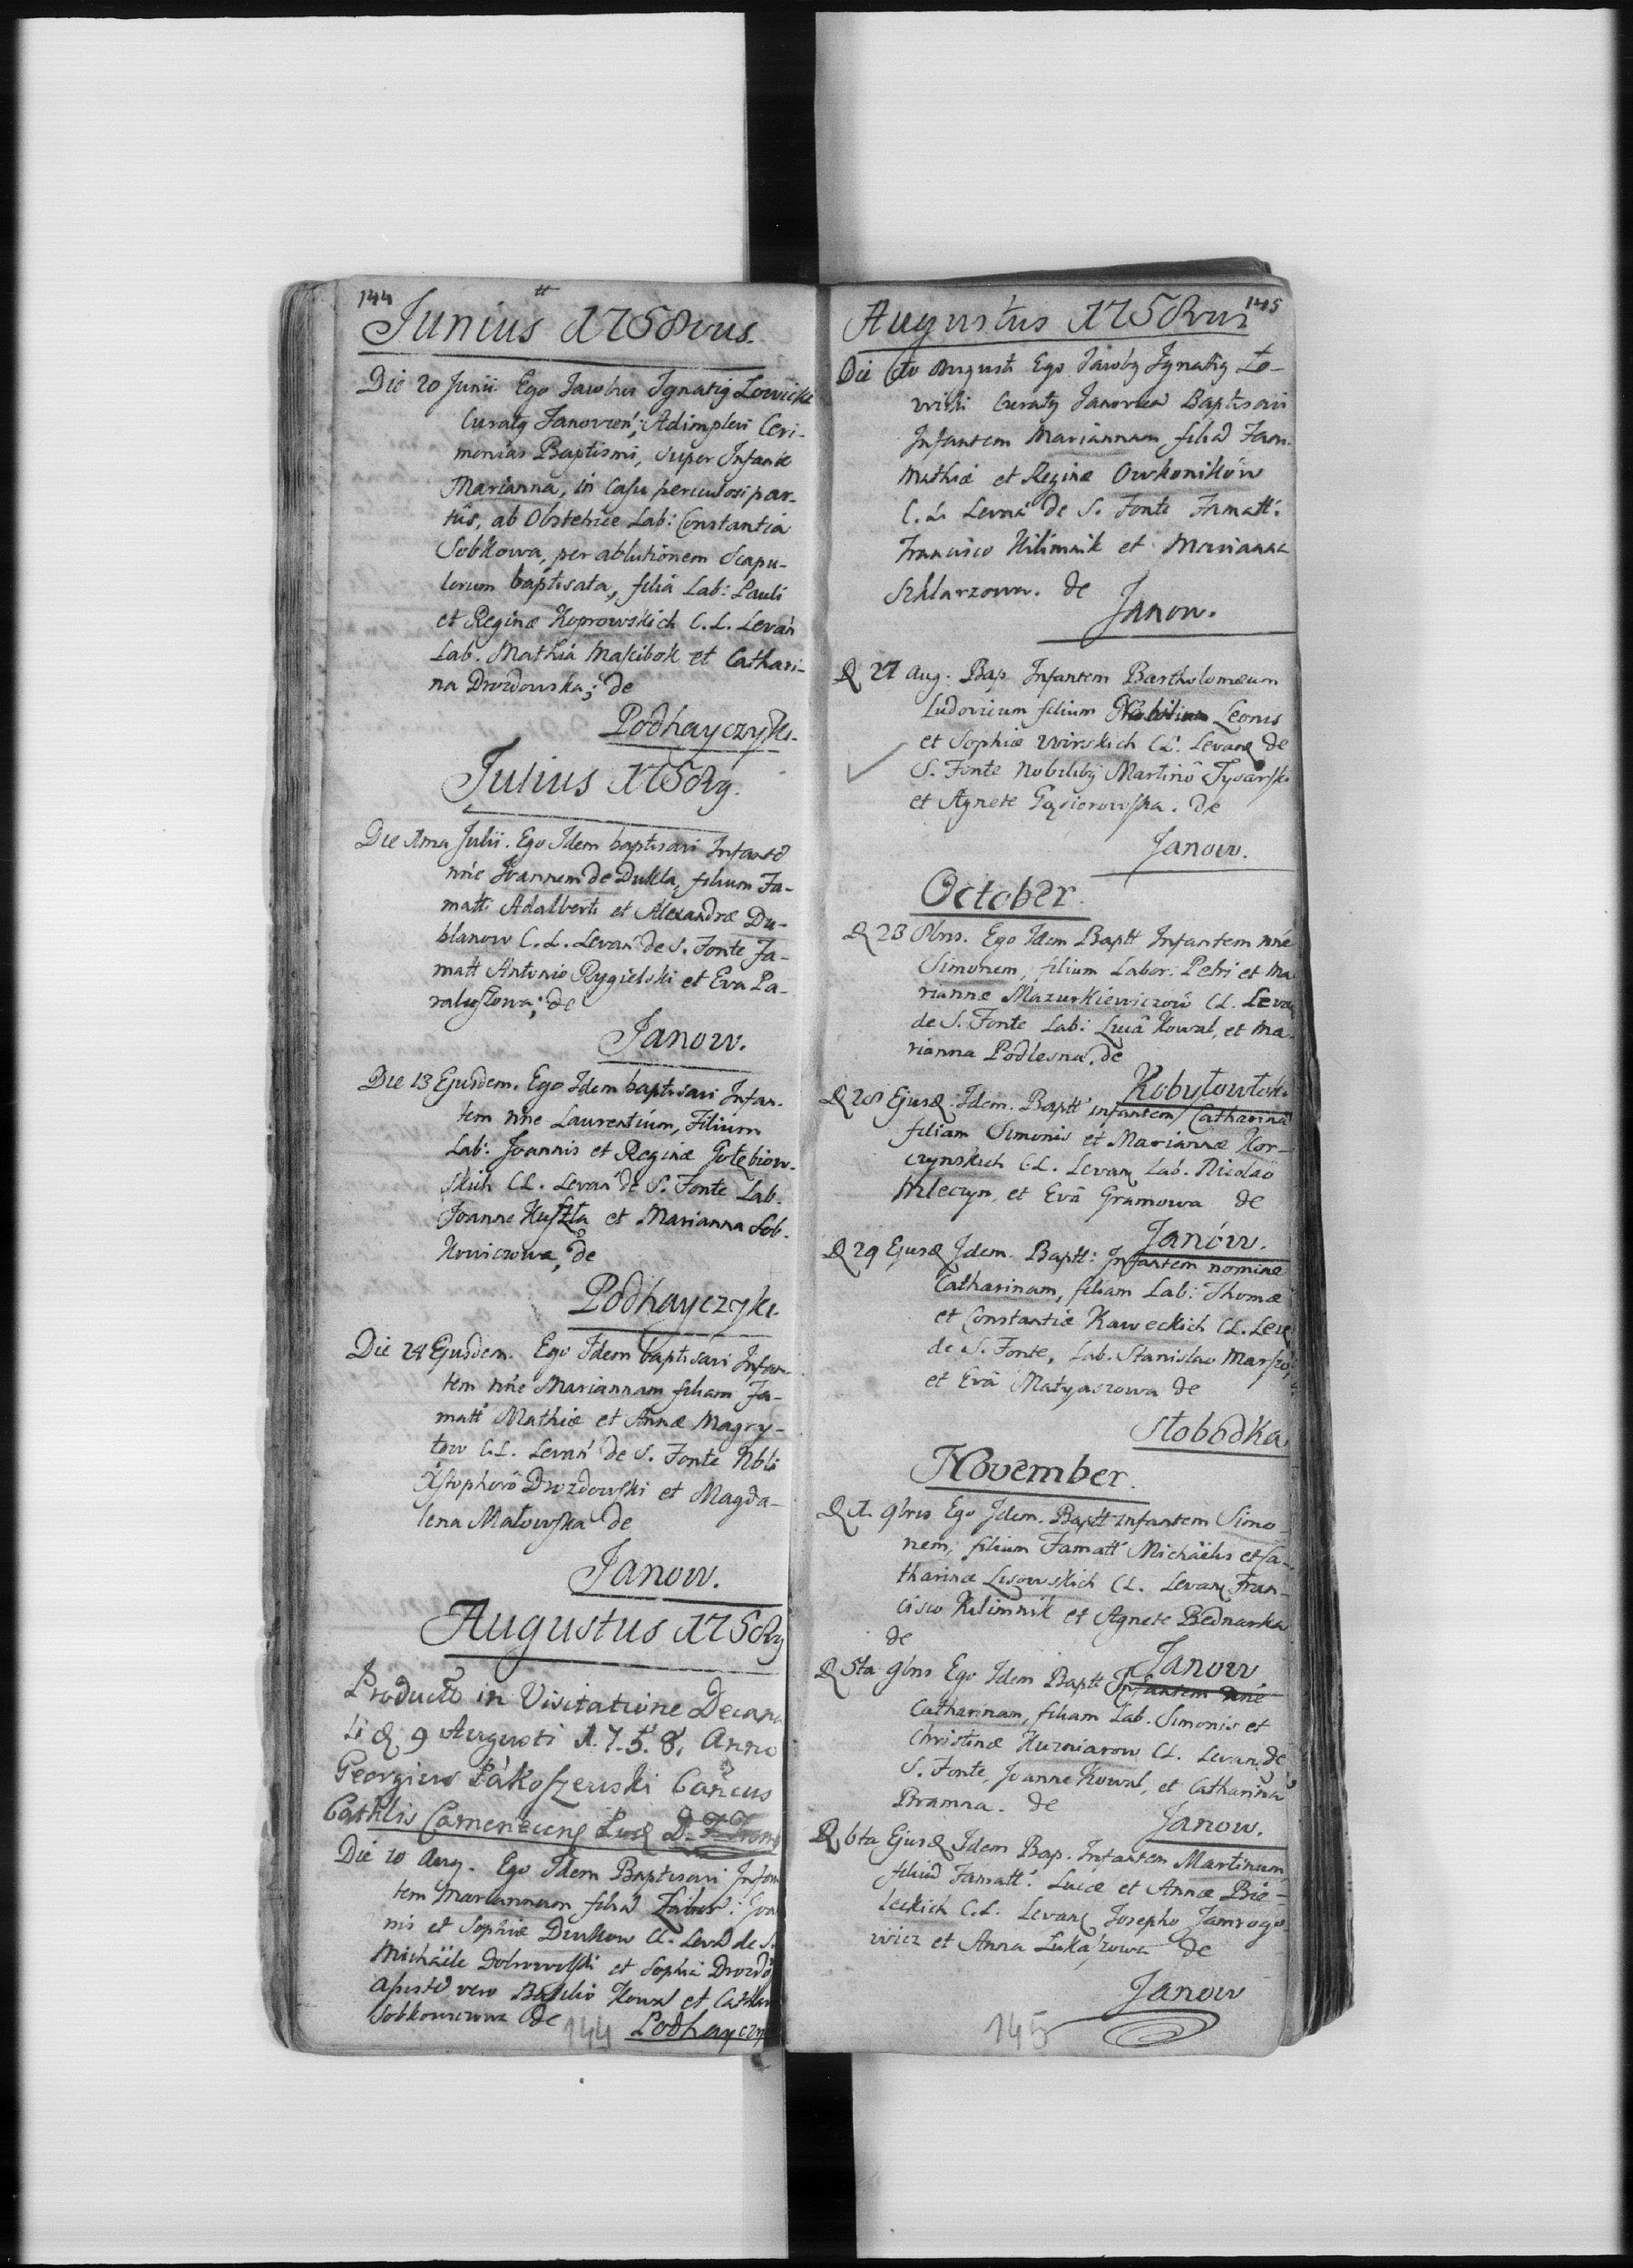 144
Junius 1758vus.
Die 20 Junii Ego Jacobus Ignatig Lowicki
Curatg Janovien; Adimplevi Ceri-
monias Baptismi, super Infante
Marianna, in Casu periculosi par-
tûs, ab Obstetrice Lab: Constantia
Sobkowa, per ablutionem Scapu-
larum baptisata, filia Lab: Pauli
et Reginæ Koprowskich C. L. Levan
Lab. Mathia Mascibok et Cathari-
na Drozdowska; de
Podhayczyki.
Julius 1758vg.
Die 1ma Julii. Ego Idem baptisavi Infante
nne Joannem de Dukla, filium Fa-
matt: Adalberti et Alexandræ Du-
blanow C. L. Levan de S. Fonte Fa-
matt Antonio Rygielski et Eva Pa-
raluszowa; de
Janow.
Die 13 Ejusdem. Ego Idem baptisavi Infan-
tem nne Laurentium, Filium
Lab: Joannis et Reginæ Gołębiow-
skich CL. Levan de S. Fonte Lab.
Joanne Huszta et Marianna Sob-
kowiczowa, de
Podhayczyki.
Die 24 Ejusdem. Ego Idem baptisavi Infan-
tem nne Mariannam filiam Fa-
matt Mathiæ et Annæ Magry-
tow C.L. Levan de S. Fonte Nbli
Xstophoro Drozdowski et Magda-
lena Małowska de
Janow.
Augustus 1758vg
Productu in Visitatione Decana
li d. 9 Augusti 1.7.5.8. Anno
Georgius Pakoszewski Cancus
Cathlis Camenecens
Die 10 Aug. Ego Idem Baptisavi Infan
tem Mariannam filia Labor: Joa
nis et Sophiæ Drukow CL. Levan de S.
Michäele Dobrowolski et Sophia Drozdo
Assiste vero Basilio Kowal et Cathar
Sobkowiczowa de
144 Podhayczy
145
Augustus 1758vus
Die 6to Augusti Ego Jacobg Ignatig Lo-
wicki Curatg Janovien Baptisavi
Infantem Mariannam, filia Fam.
Mathiæ et Reginæ Owkoników
C. L. Levan de S. Fonte Famatt.
Francisco Kilimnik et Marianna
Szklarzowa. de
Janow.
D 27 Aug. Bap Infantem Bartholomæum
Ludovicum filium Nobilium Leonis
et Sophiæ Wirskich CL. Levans de
S. Fonte Nobilibg Martino Tysarski
et Agnete Gąsierowska. de
Janow.
October.
D 23 8bris. Ego Idem Baptt Infantem nne
Simonem, filium Labor: Petri et Ma
riannæ Mazurkiewiczow CL. Levan
de S. Fonte Lab: Luca Kowal, et Ma-
rianna Podlesna. de
Kobyłowłoki.
D 28 Ejusd. Idem. Baptt infantem Catharina
filiam Simonis et Mariannæ Kor-
czynskich C.L. Levan Lab. Nicolao
Mleczyn, et Evâ Gramowa de
Janow.
D 29 Ejusd Idem. Baptt: Infantem nomine
Catharinam, filiam Lab: Thomæ
et Constantiæ Kaweckich CL. Leve
de S. Fonte, Lab. Stanislao
et Evâ Matyaszowa de
Słobodka
November.
D 1. 9bris Ego Idem. Baptt Infantem Simo-
nem, filium Famatt Michäelis et Ca-
tharinæ Lisowskich CL. Levan Fran-
cisco Kilimnik et Agnete Bednarka
de
Janow
D 5ta 9bris Ego Idem Baptt Infantem nne
Catharinam, filiam Lab. Simonis et
Christinæ Kuzniarow CL. Levan de
S. Fonte, Joanne Kowal, et Catharina
Bramna. de
Janow.
D 6ta Ejusd Idem Bap. Infantem Martinum
filiu Famatt: Lucæ et Annæ Bie-
leckich C.L. Levan Josepho Jamrogo-
wicz et Anna Łukaszowa de
Janow
145